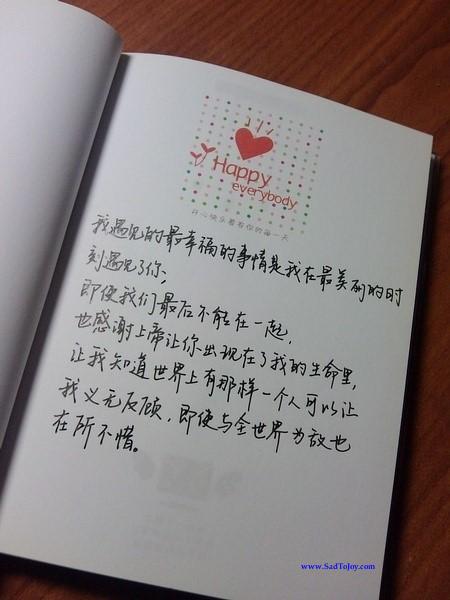 Happy
everybody
开心快乐着看你的每一天
我遇见的最幸福的事情是我在最美丽的时
刻遇见了你,
即使我们最后不能在一起,
也感谢上帝让你出现在了我的生命里,
让我知道世界上有那样一个人可以让
我义无反顾,即使与全世界为敌也
在所不惜。
www.SadToJoy.com